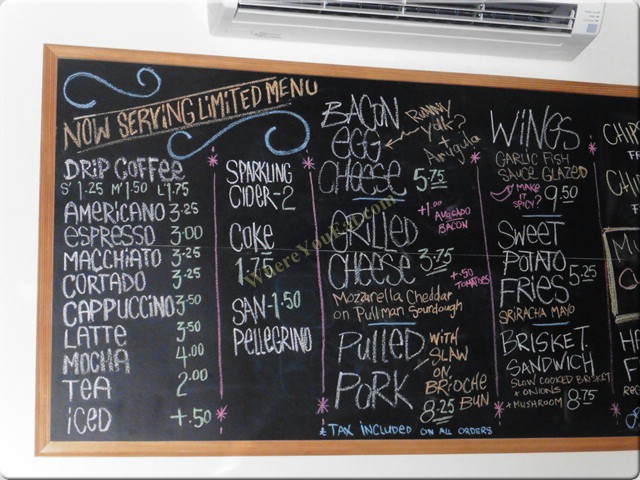 NOW SERVING LIMITED MENU
DRIP COFFEE
S' 1.25 M' 1.50 L 1.75
AMERICANO 3.25
ESPRESSO 3.00
MACCHIATO 3.25
CORTADO 3.25
CAPPUCCINO 3.50
LATTE 3.50
MOCHA 4.00
TEA 2.00
ICED +.50
SPARKLING
CIDER-2
COKE
1.75
SAN-1.50
PELLEGRINO
BACON
EGG
CHEESE 5.75
RUNNY
YOLK?
+
Arugula
+1.00 AVOCADO
BACON
GRILLED
CHEESE 3.75
+.50
TOMATOES
MOZZARELLA CHEDDAR
ON PULLMAN SOURDOUGH
PULLED
PORK
WITH
SLAW
ON
BRIOCHE
BUN
8.25
* TAX INCLUDED ON ALL ORDERS
WINGS
GARLIC FISH
SAUCE GLAZED
MAKE
IT
SPICY?
9.50
SWEET
POTATO
FRIES 5.25
SRIRACHA MAYO
BRISKET
SANDWICH
SLOW COOKED BRISKET
+ ONIONS
+ MUSHROOM 8.75
WhereYouEat.com